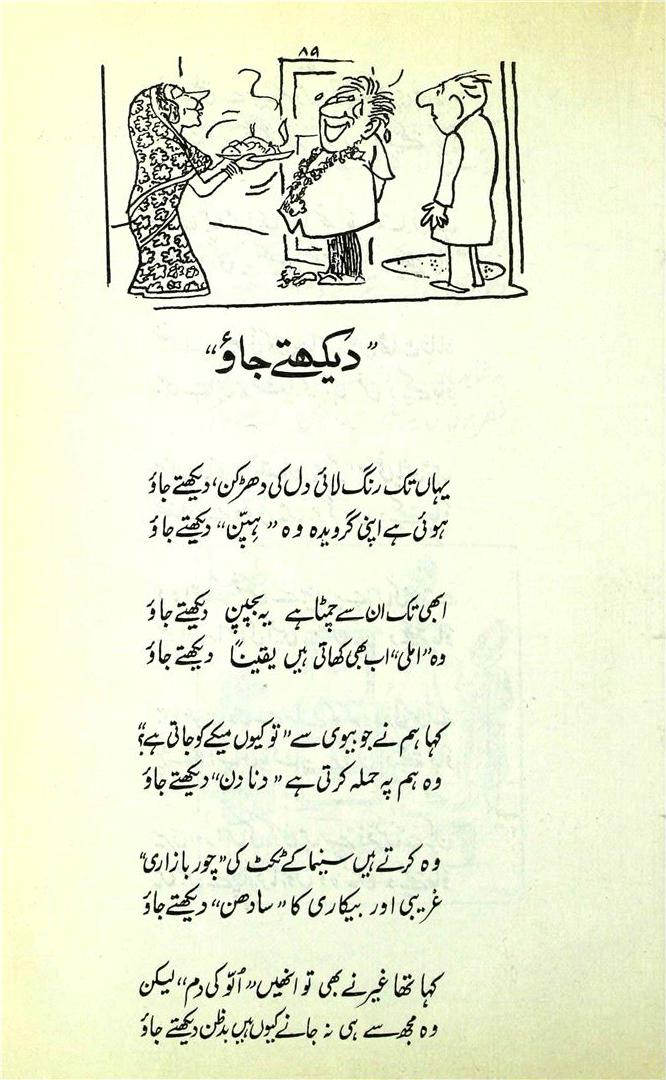 ۸۹
”دیکھتے جاؤ“
یہاں تک رنگ لائی دل کی دھڑکن، دیکھتے جاؤ
ہوئی ہے اپنی گرویدہ وہ ”ہپّن“ دیکھتے جاؤ
ابھی تک ان سے چمٹا ہے یہ بچپن دیکھتے جاؤ
وہ ”املی“ اب بھی کھاتی ہیں یقیناً دیکھتے جاؤ
کہا ہم نے جو بیوی سے ”تو کیوں میکے کو جاتی ہے؟“
وہ ہم پہ حملہ کرتی ہے ”دنا دن“ دیکھتے جاؤ
وہ کرتے ہیں سینما کے ٹکٹ کی ”چور بازاری“
غریبی اور بیکاری کا ”سادھن“ دیکھتے جاؤ
کہا تھا غیر نے بھی تو انھیں ”اُلّو کی دم“ لیکن
وہ مجھ سے ہی نہ جانے کیوں ہیں بدظن دیکھتے جاؤ